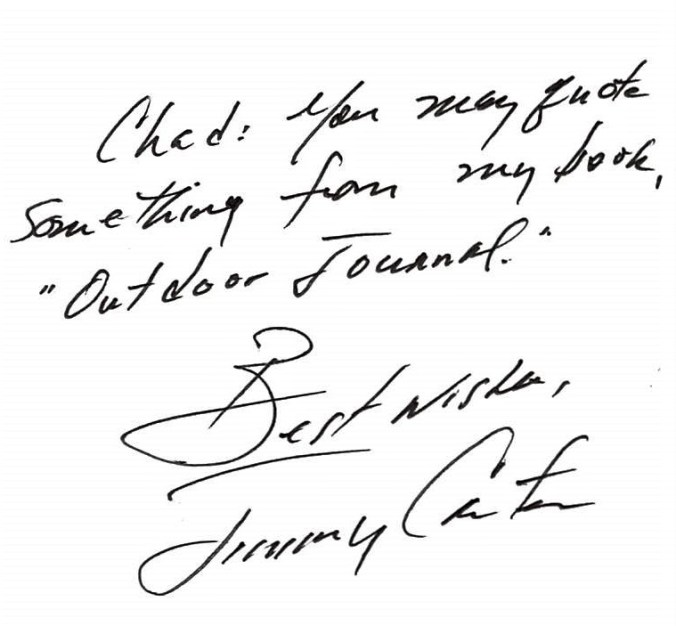 Chad: You may quote
something from my book,
"Outdoor Journal."
Best wishes,
Jimmy Carter